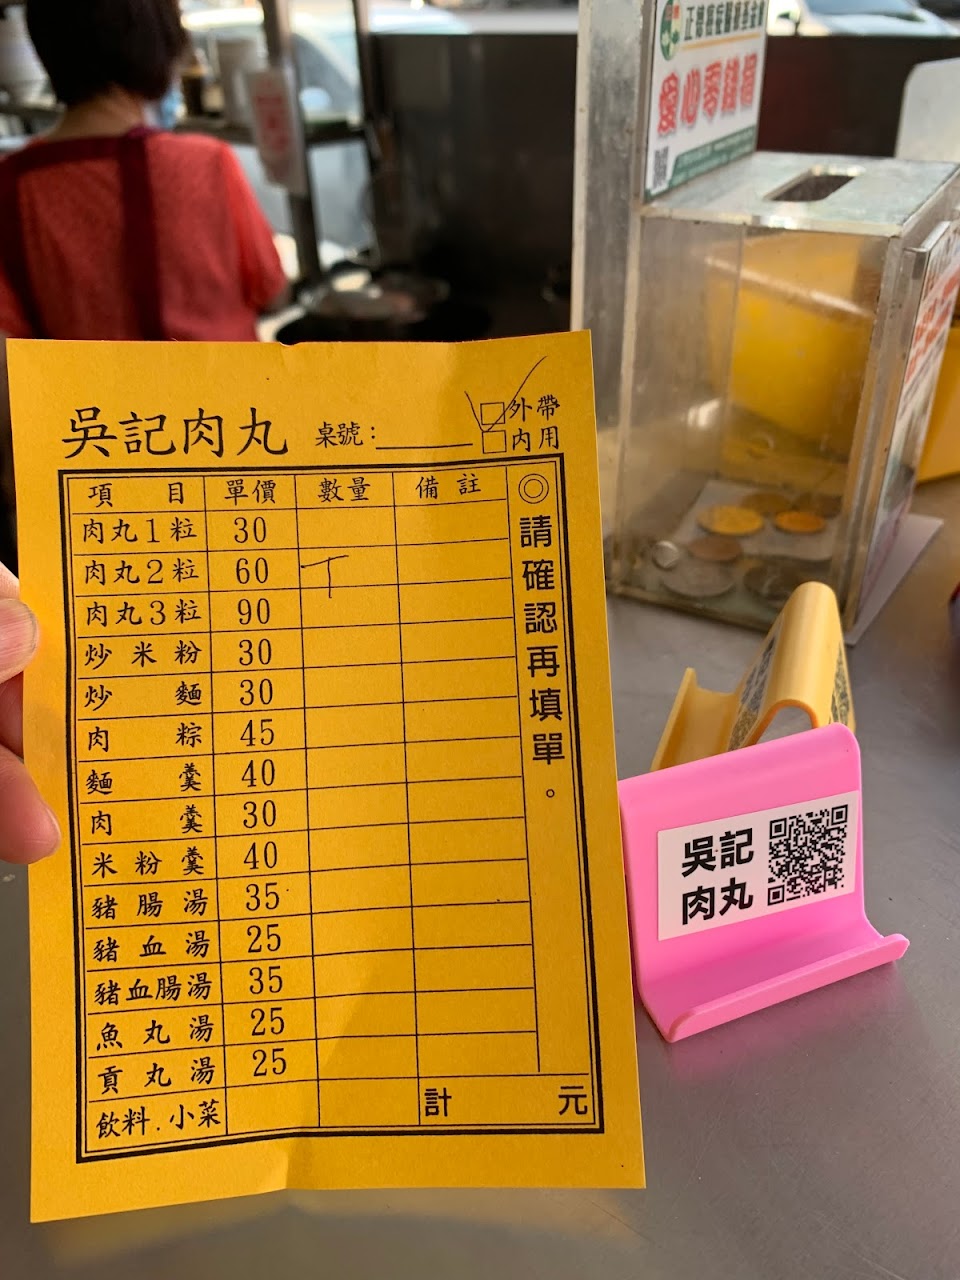 愛心零錢捐
吳記肉丸 桌號： 外帶
內用
項目 單價 數量 備註
肉丸1粒 30
肉丸2粒 60 T
肉丸3粒 90
炒米粉 30
炒麵 30
肉粽 45
麵羹 40
肉羹 30
米粉羹 40
豬腸湯 35
豬血湯 25
豬血腸湯 35
魚丸湯 25
貢丸湯 25
飲料.小菜 計 元
◎請確認再填單。
吳記
肉丸